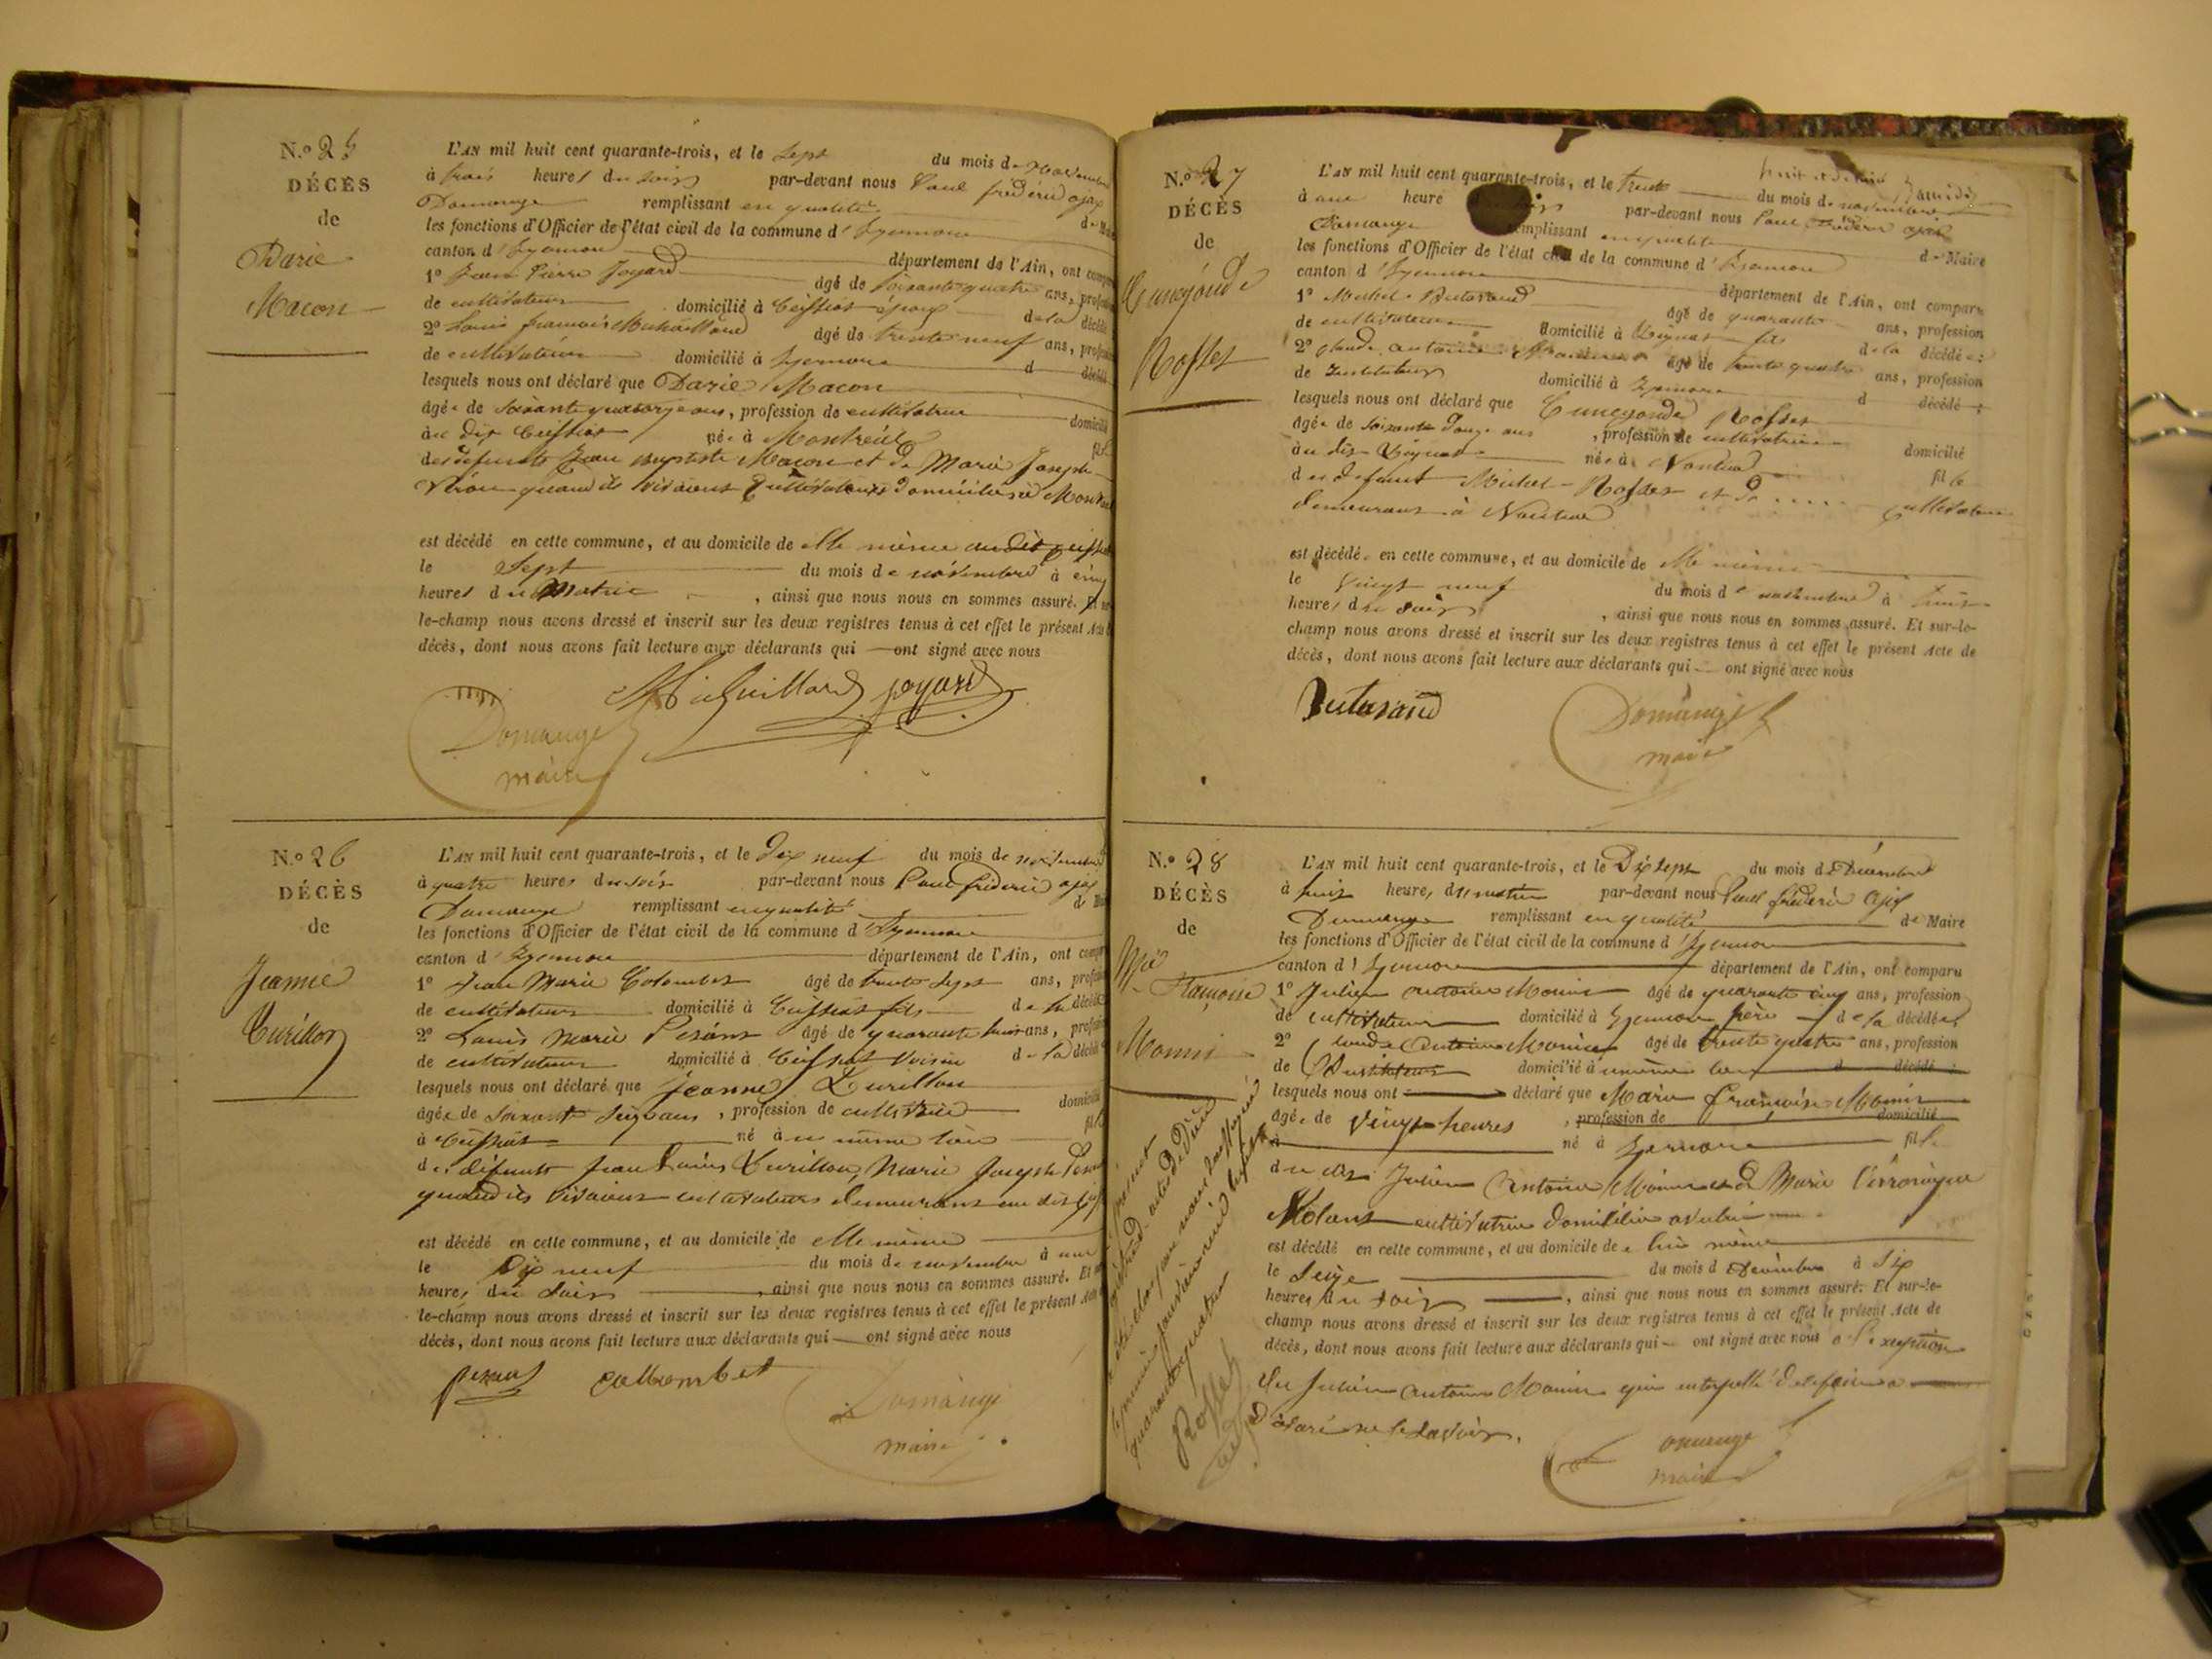 N.º 25
DÉCÈS
de
Darie
Macon
L'AN mil huit cent quarante-trois, et le sept du mois de novembre
à trois heures du soir par-devant nous Paul frédéric ajax
Domange remplissant en qualité de
les fonctions d'Officier de l'état civil de la commune d'Izernore
canton d'Izernore département de l'Ain, ont
1º Jean Pierre Joyard âgé de soixante quatre ans,
de cultivateur domicilié à Ceissiat époux de la décédée
2º Louis françois Mahuillard âgé de trente neuf ans,
de cultivateur domicilié à Izernore d décédé
lesquels nous ont déclaré que Darie Macon
âgée de soixante quatorze ans, profession de cultivatrice domicilié
au dit Ceissiat née à Montréal
des défunts Jean Baptiste Macon et de Marie Josephe
quand ils vivaient cultivateurs domiciliés à
est décédé en cette commune, et au domicile de elle même au dit
le sept du mois de novembre à cinq
heures du matin, ainsi que nous nous en sommes assuré.
le-champ nous avons dressé et inscrit sur les deux registres tenus à cet effet le présent
décès, dont nous avons fait lecture aux déclarants qui ont signé avec nous
joyard
Domange
maire
N.º 26
DÉCÈS
de
Jeanne
Curillon
L'AN mil huit cent quarante-trois, et le dix neuf du mois de novembre
à quatre heures du soir par-devant nous Paul frédéric ajax
Domange remplissant en qualité de
les fonctions d'Officier de l'état civil de la commune d'Izernore
canton d'Izernore département de l'Ain, ont
1º Jean Marie Colombet âgé de trente sept ans,
de cultivateur domicilié à Ceissiat fils de la décédée
2º Louis Marie Pesant âgé de quarante huit ans,
de cultivateur domicilié à Ceissiat voisin de la décédée
lesquels nous ont déclaré que Jeanne Curillon
âgée de soixante seize ans, profession de cultivatrice
à Ceissiat né à u même lieu
des défunts Jean Louis Curillon, Marie Josephe
quand ils vivaient cultivateurs demeurans au dit
est décédé en cette commune, et au domicile de elle même
le Dix neuf du mois de novembre à une
heure, du soir, ainsi que nous nous en sommes assuré.
le-champ nous avons dressé et inscrit sur les deux registres tenus à cet effet le présent
décès, dont nous avons fait lecture aux déclarants qui ont signé avec nous
pesant collombet
Domange
maire
N.º 27
DÉCÈS
de
Cunégonde
Rosset
L'AN mil huit cent quarante-trois, et le trente du mois de novembre
à une heure par-devant nous Paul frédéric ajax
Domange remplissant en qualité de Maire
les fonctions d'Officier de l'état civil de la commune d'Izernore
canton d'Izernore département de l'Ain, ont comparu
1º Michel âgé de quarante ans, profession
de cultivateur domicilié à fils de la décédée:
2º glaude antoine âgé de trente quatre ans, profession
de Instituteur domicilié à Izernore d décédé:
lesquels nous ont déclaré que Cunegonde Rosset
âgée de soixante douze ans, profession de cultivatrice domicilié
au dit née à Nantua fille
des défunt Michel Rosset et de cultivateur
demeurans à Nantua
est décédé en cette commune, et au domicile de elle même
le vingt neuf du mois de novembre à
heures du soir, ainsi que nous nous en sommes assuré. Et sur-le-
champ nous avons dressé et inscrit sur les deux registres tenus à cet effet le présent Acte de
décès, dont nous avons fait lecture aux déclarants qui ont signé avec nous
Domange
maire
N.º 28
DÉCÈS
de
Mie
françoise
Monin
L'AN mil huit cent quarante-trois, et le Dix sept du mois de Décembre
à huit heures du matin par-devant nous Paul frédéric ajax
Domange remplissant en qualité de Maire
les fonctions d'Officier de l'état civil de la commune d'Izernore
canton d'Izernore département de l'Ain, ont comparu
1º Julien antoine Monin âgé de quarante cinq ans, profession
de cultivateur domicilié à Izernore père de la décédée,
2º Claude Antoine Monin âgé de trente quatre ans, profession
de Instituteur domicilié à u même lieu d décédé:
lesquels nous ont déclaré que Marie françoise Monin
âgée de vingt heures, profession de domicilié
à né à Izernore fille
du dit Julien Antoine Monin et de Marie Véronique
Molans cultivatrice domiciliée avec lui
est décédé en cette commune, et au domicile de lui même
le Seize du mois de Décembre à six
heures du soir, ainsi que nous nous en sommes assuré. Et sur-le-
champ nous avons dressé et inscrit sur les deux registres tenus à cet effet le présent Acte de
décès, dont nous avons fait lecture aux déclarants qui ont signé avec nous a l'exception
du Julien Antoine Monin qui interpellé de le faire a
déclaré ne le savoir.
Domange
maire
Rosset